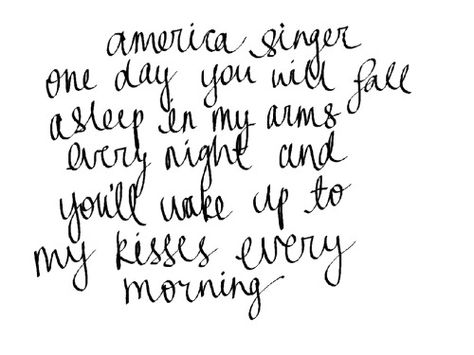 america singer
one day you will fall
asleep in my arms
every night and
you'll wake up to
my kisses every
morning